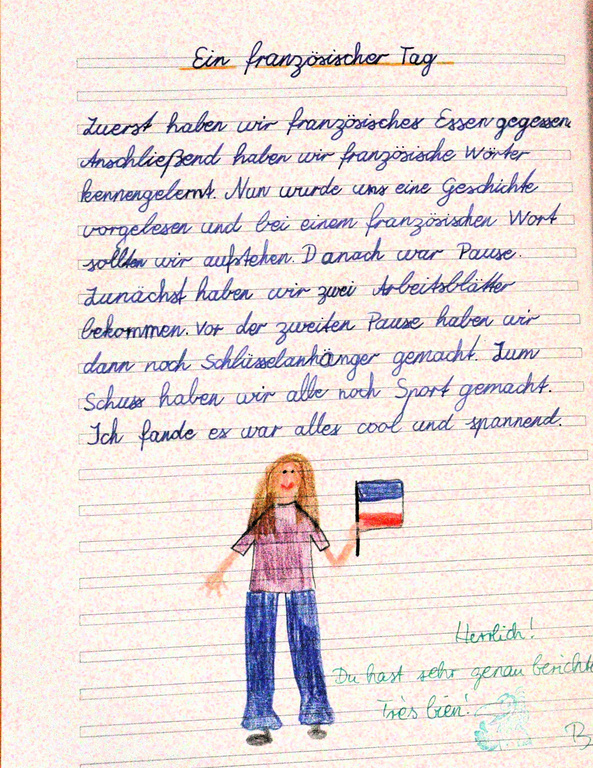 Ein französischer Tag
Zuerst haben wir französisches Essen gegessen.
Anschließend haben wir französische Wörter
kennengelernt. Nun wurde uns eine Geschichte
vorgelesen und bei einem französischen Wort
sollten wir aufstehen. Danach war Pause.
Zunächst haben wir zwei Arbeitsblätter
bekommen. Vor der zweiten Pause haben wir
dann noch Schlüsselanhänger gemacht. Zum
Schuss haben wir alle noch Sport gemacht.
Ich fande es war alles cool und spannend.
Herrlich!
Du hast sehr genau berichte
Très bien!